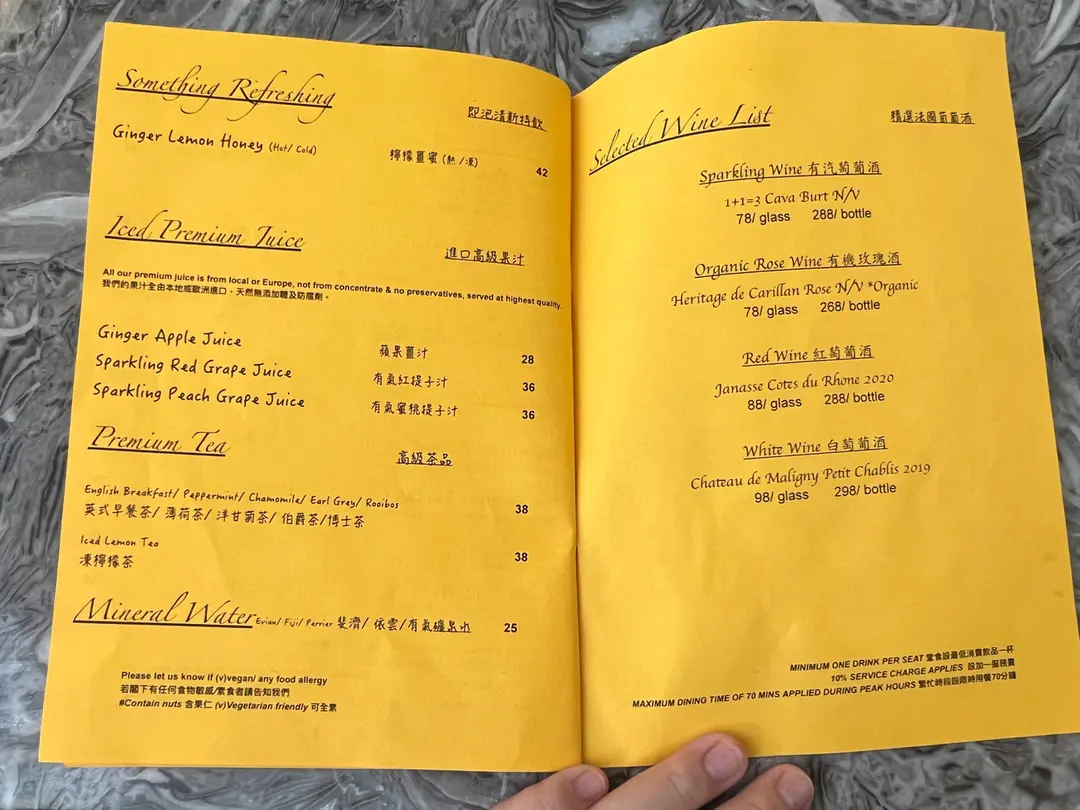 Something Refreshing 即泡清新特飲
Ginger Lemon Honey (Hot/ Cold) 檸檬薑蜜 (熱/凍) 42
Iced Premium Juice 進口高級果汁
All our premium juice is from local or Europe, not from concentrate & no preservatives, served at highest quality.
我們的果汁全由本地或歐洲進口，天然無添加糖及防腐劑。
Ginger Apple Juice 蘋果薑汁 28
Sparkling Red Grape Juice 有氣紅提子汁 36
Sparkling Peach Grape Juice 有氣蜜桃提子汁 36
Premium Tea 高級茶品
English Breakfast/ Peppermint/ Chamomile/ Earl Grey/ Rooibos
英式早餐茶/ 薄荷茶/ 洋甘菊茶/ 伯爵茶/博士茶 38
Iced Lemon Tea
凍檸檬茶 38
Mineral Water Evian/ Fiji/ Perrier 斐濟/ 依雲/有氣礦泉水 25
Please let us know if (v)vegan/ any food allergy
若閣下有任何食物敏感/素食者請告知我們
#Contain nuts 含果仁 (v)Vegetarian friendly 可全素
Selected Wine List 精選法國葡萄酒
Sparkling Wine 有汽萄葡酒
1+1=3 Cava Burt N/V
78/ glass 288/ bottle
Organic Rose Wine 有機玫瑰酒
Heritage de Carillan Rose N/V *Organic
78/ glass 268/ bottle
Red Wine 紅萄葡酒
Janasse Cotes du Rhone 2020
88/ glass 288/ bottle
White Wine 白萄葡酒
Chateau de Maligny Petit Chablis 2019
98/ glass 298/ bottle
MINIMUM ONE DRINK PER SEAT 堂食設最低消費飲品一杯
10% SERVICE CHARGE APPLIES 設加一服務費
MAXIMUM DINING TIME OF 70 MINS APPLIED DURING PEAK HOURS 繁忙時段設限時用餐70分鐘